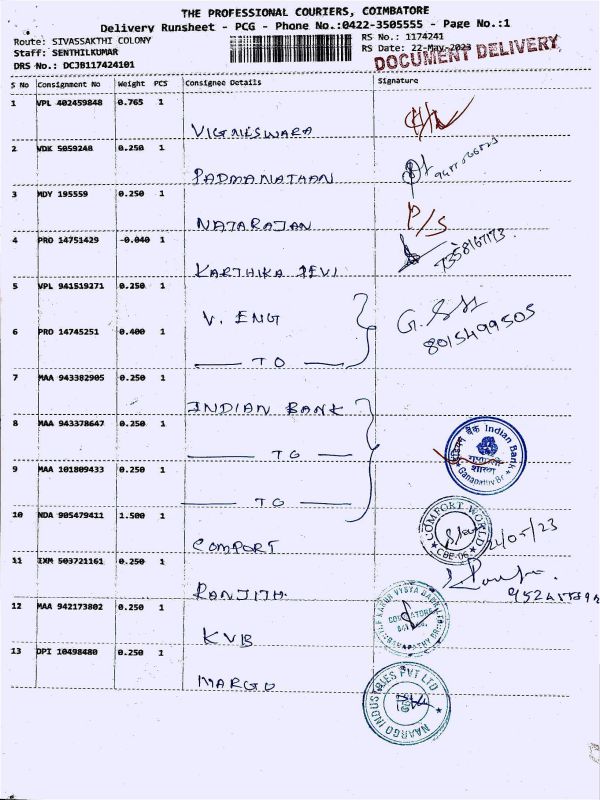 THE PROFESSIONAL COURIERS, COIMBATORE
Delivery Runsheet - PCG - Phone No.:0422-3505555 - Page No.:1
Route: SIVASSAKTHI COLONY
RS No.: 1174241
Staff: SENTHILKUMAR
RS Date: 22-May-2023
DOCUMENT DELIVERY
DRS No.: DCJB117424101
S No Consignment No Weight PCS Consignee Details Signature
1 VPL 402459848 0.765 1
VIGNESWARA
2 VDK 5059248 0.250 1
PADMANATHAN
3 MDY 195559 0.250 1
NATARAJAN P/S
4 PRO 14751429 -0.040 1
KARTHIKA DEVI 7358167173
5 VPL 941519271 0.250 1
V. ENG
8015499505
6 PRO 14745251 0.400 1
TO
7 MAA 943382905 0.250 1
INDIAN BANK
8 MAA 943378647 0.250 1
TO
इंडियन बैंक Indian Bank
Ganapathy Br.
9 MAA 101809433 0.250 1
TO
10 NDA 905479411 1.500 1
COMFORT WORLD
CBE-06
COMPORT
11 IXM 503721161 0.250 1
RANJITH
12 MAA 942173802 0.250 1
KARUR VYSYA BANK LTD
KVB
13 DPI 10498480 0.250 1
MARGO
NAARGO INDUSTRIES PVT LTD